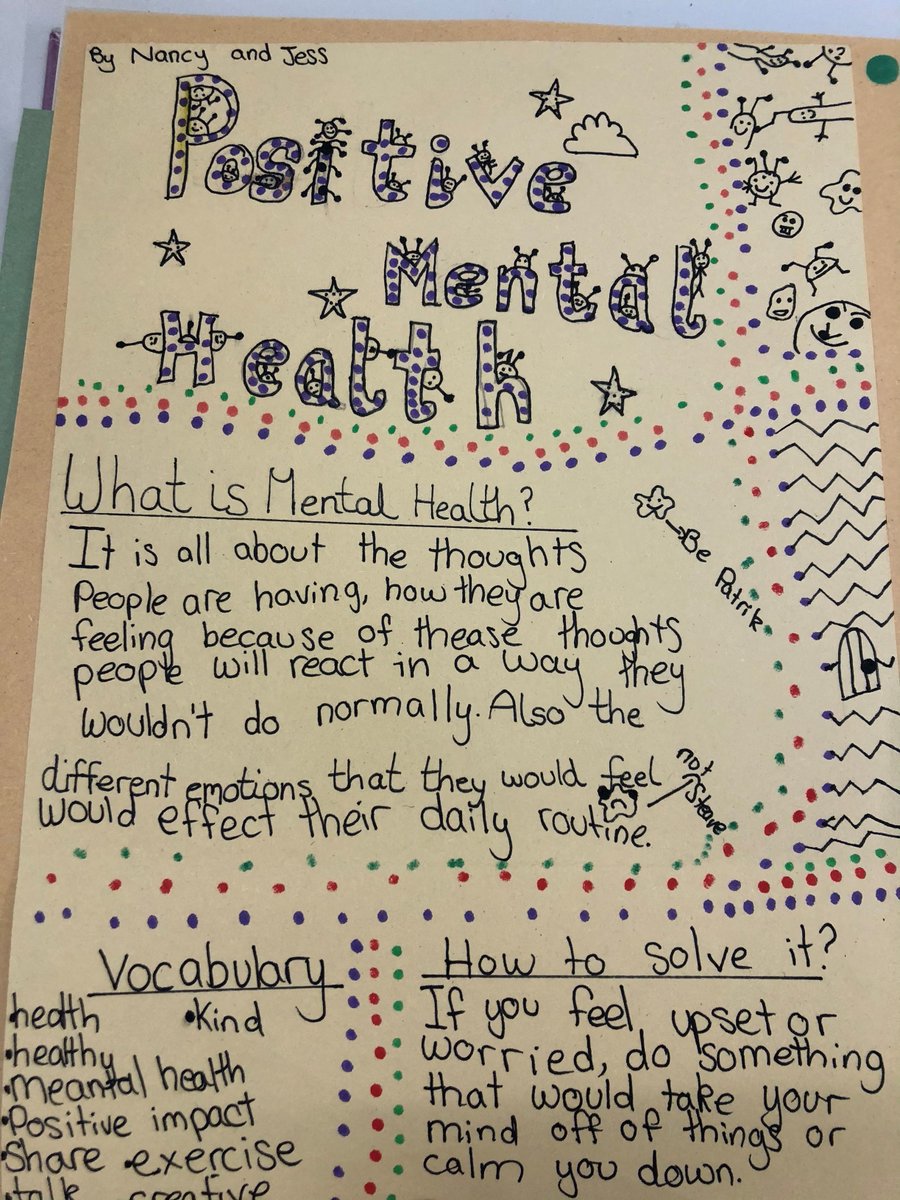 By Nancy and Jess
Positive
Mental
Health
What is Mental Health?
It is all about the thoughts
People are having, how they are
feeling because of thease thoughts
people will react in a way they
wouldn't do normally. Also the
different emotions that they would feel
would effect their daily routine.
Be Patrik
not Steave
Vocabulary
•health •Kind
•healthy
•meantal health
•Positive impact
•Share •exercise
•talk creative
How to solve it?
If you feel, upset or
worried, do something
that would take your
mind off of things or
calm you down.